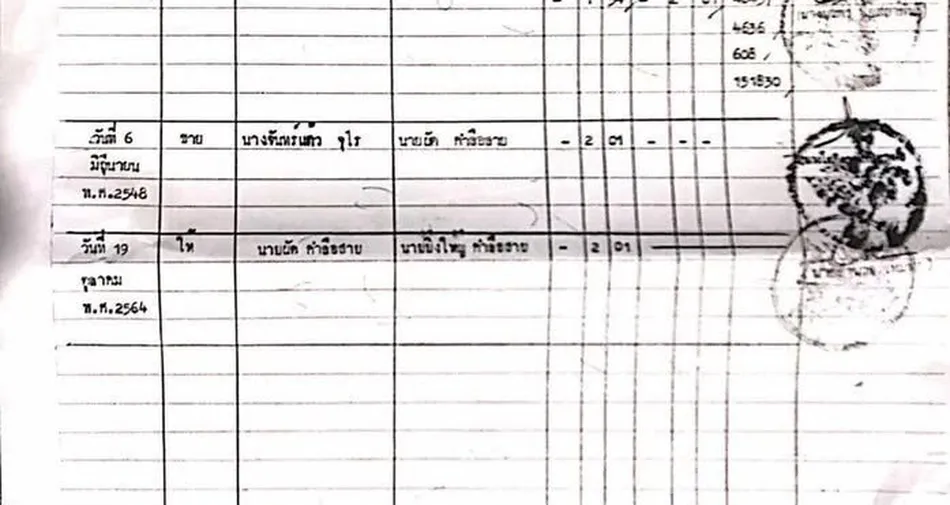 4636
608 /
151830
วันที่ 6 ขาย นางจันทร์แก้ว จุไร นายผัด คำลือสาย - 2 01 - - -
มิถุนายน
พ.ศ.2548
วันที่ 19 ให้ นายผัด คำลือสาย นายยิ่งใหญ่ คำลือสาย - 2 01
ตุลาคม
พ.ศ.2564